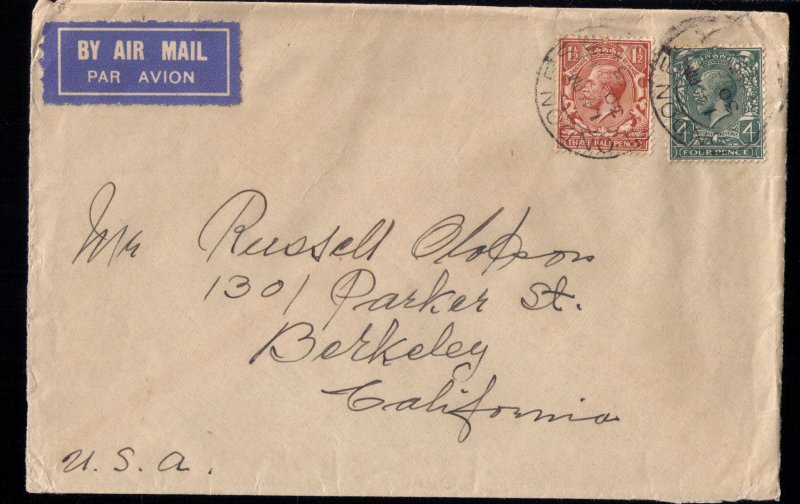 BY AIR MAIL
PAR AVION
1½ 1½
THREE HALFPENCE
4 4
FOUR PENCE
LONDON
Mr Russell Olofson
1301 Parker St.
Berkeley
California
U. S. A.